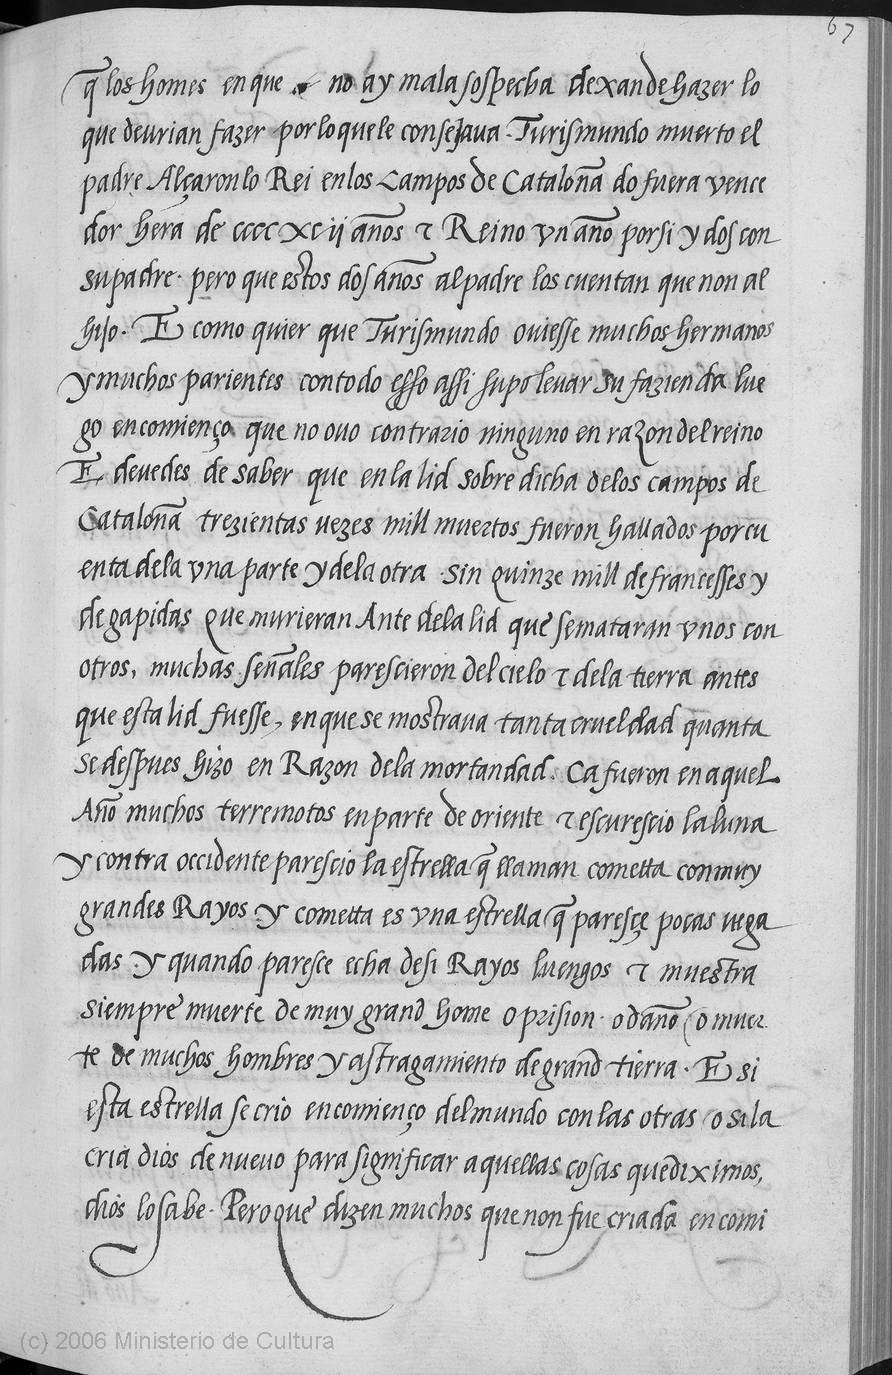 67
q̃ los homes en que no ay mala sospecha dexan de hazer lo
que deurian fazer por lo que le consejaua. Turismundo muerto el
padre Alçaron lo Rei en los Campos de Cataloña do fuera vence
dor hera de ccccxcij años τ Reino vn año por si y dos con
su padre. pero que estos dos años al padre los cuentan que non al
hijo. E como quier que Turismundo ouiesse muchos hermanos
y muchos parientes con todo esso assi supo levar su fazienda lue
go en comienço que no ovo contrario ninguno en razon del reino
E devedes de saber que en la lid sobre dicha de los campos de
Cataloña trezientas vezes mill muertos fueron hallados por cu
enta de la vna parte y de la otra sin quinze mill de francesses y
de gapidas que murieran Ante de la lid que se mataran vnos con
otros, muchas señales parescieron del cielo τ de la tierra antes
que esta lid fuesse, en que se mostraua tanta crueldad quanta
se despues hizo en Razon de la mortandad. Ca fueron en aquel
Año muchos terremotos en parte de oriente τ escurescio la luna
y contra occidente parescio la estrella q̃ llaman cometta con muy
grandes Rayos y cometta es vna estrella q̃ paresçe pocas vega
das y quando paresce echa de si Rayos luengos τ muestra
siempre muerte de muy grand home o prision. o daño (o muer
te de muchos hombres y astragamiento de grand tierra. E si
esta estrella se crio en comienço del mundo con las otras o si la
cria dios de nuevo para significar aquellas cosas que diximos,
dios lo sabe. Pero que dizen muchos que non fue criada en comi
(c) 2006 Ministerio de Cultura